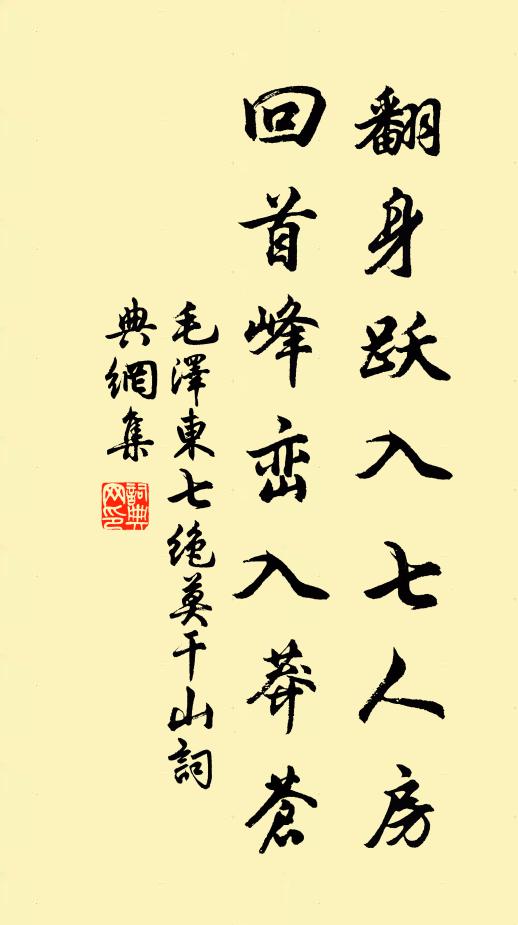 翻身跃入七人房
回首峰峦入莽苍
毛澤東七绝莫干山詞
典網集
詞典
网印